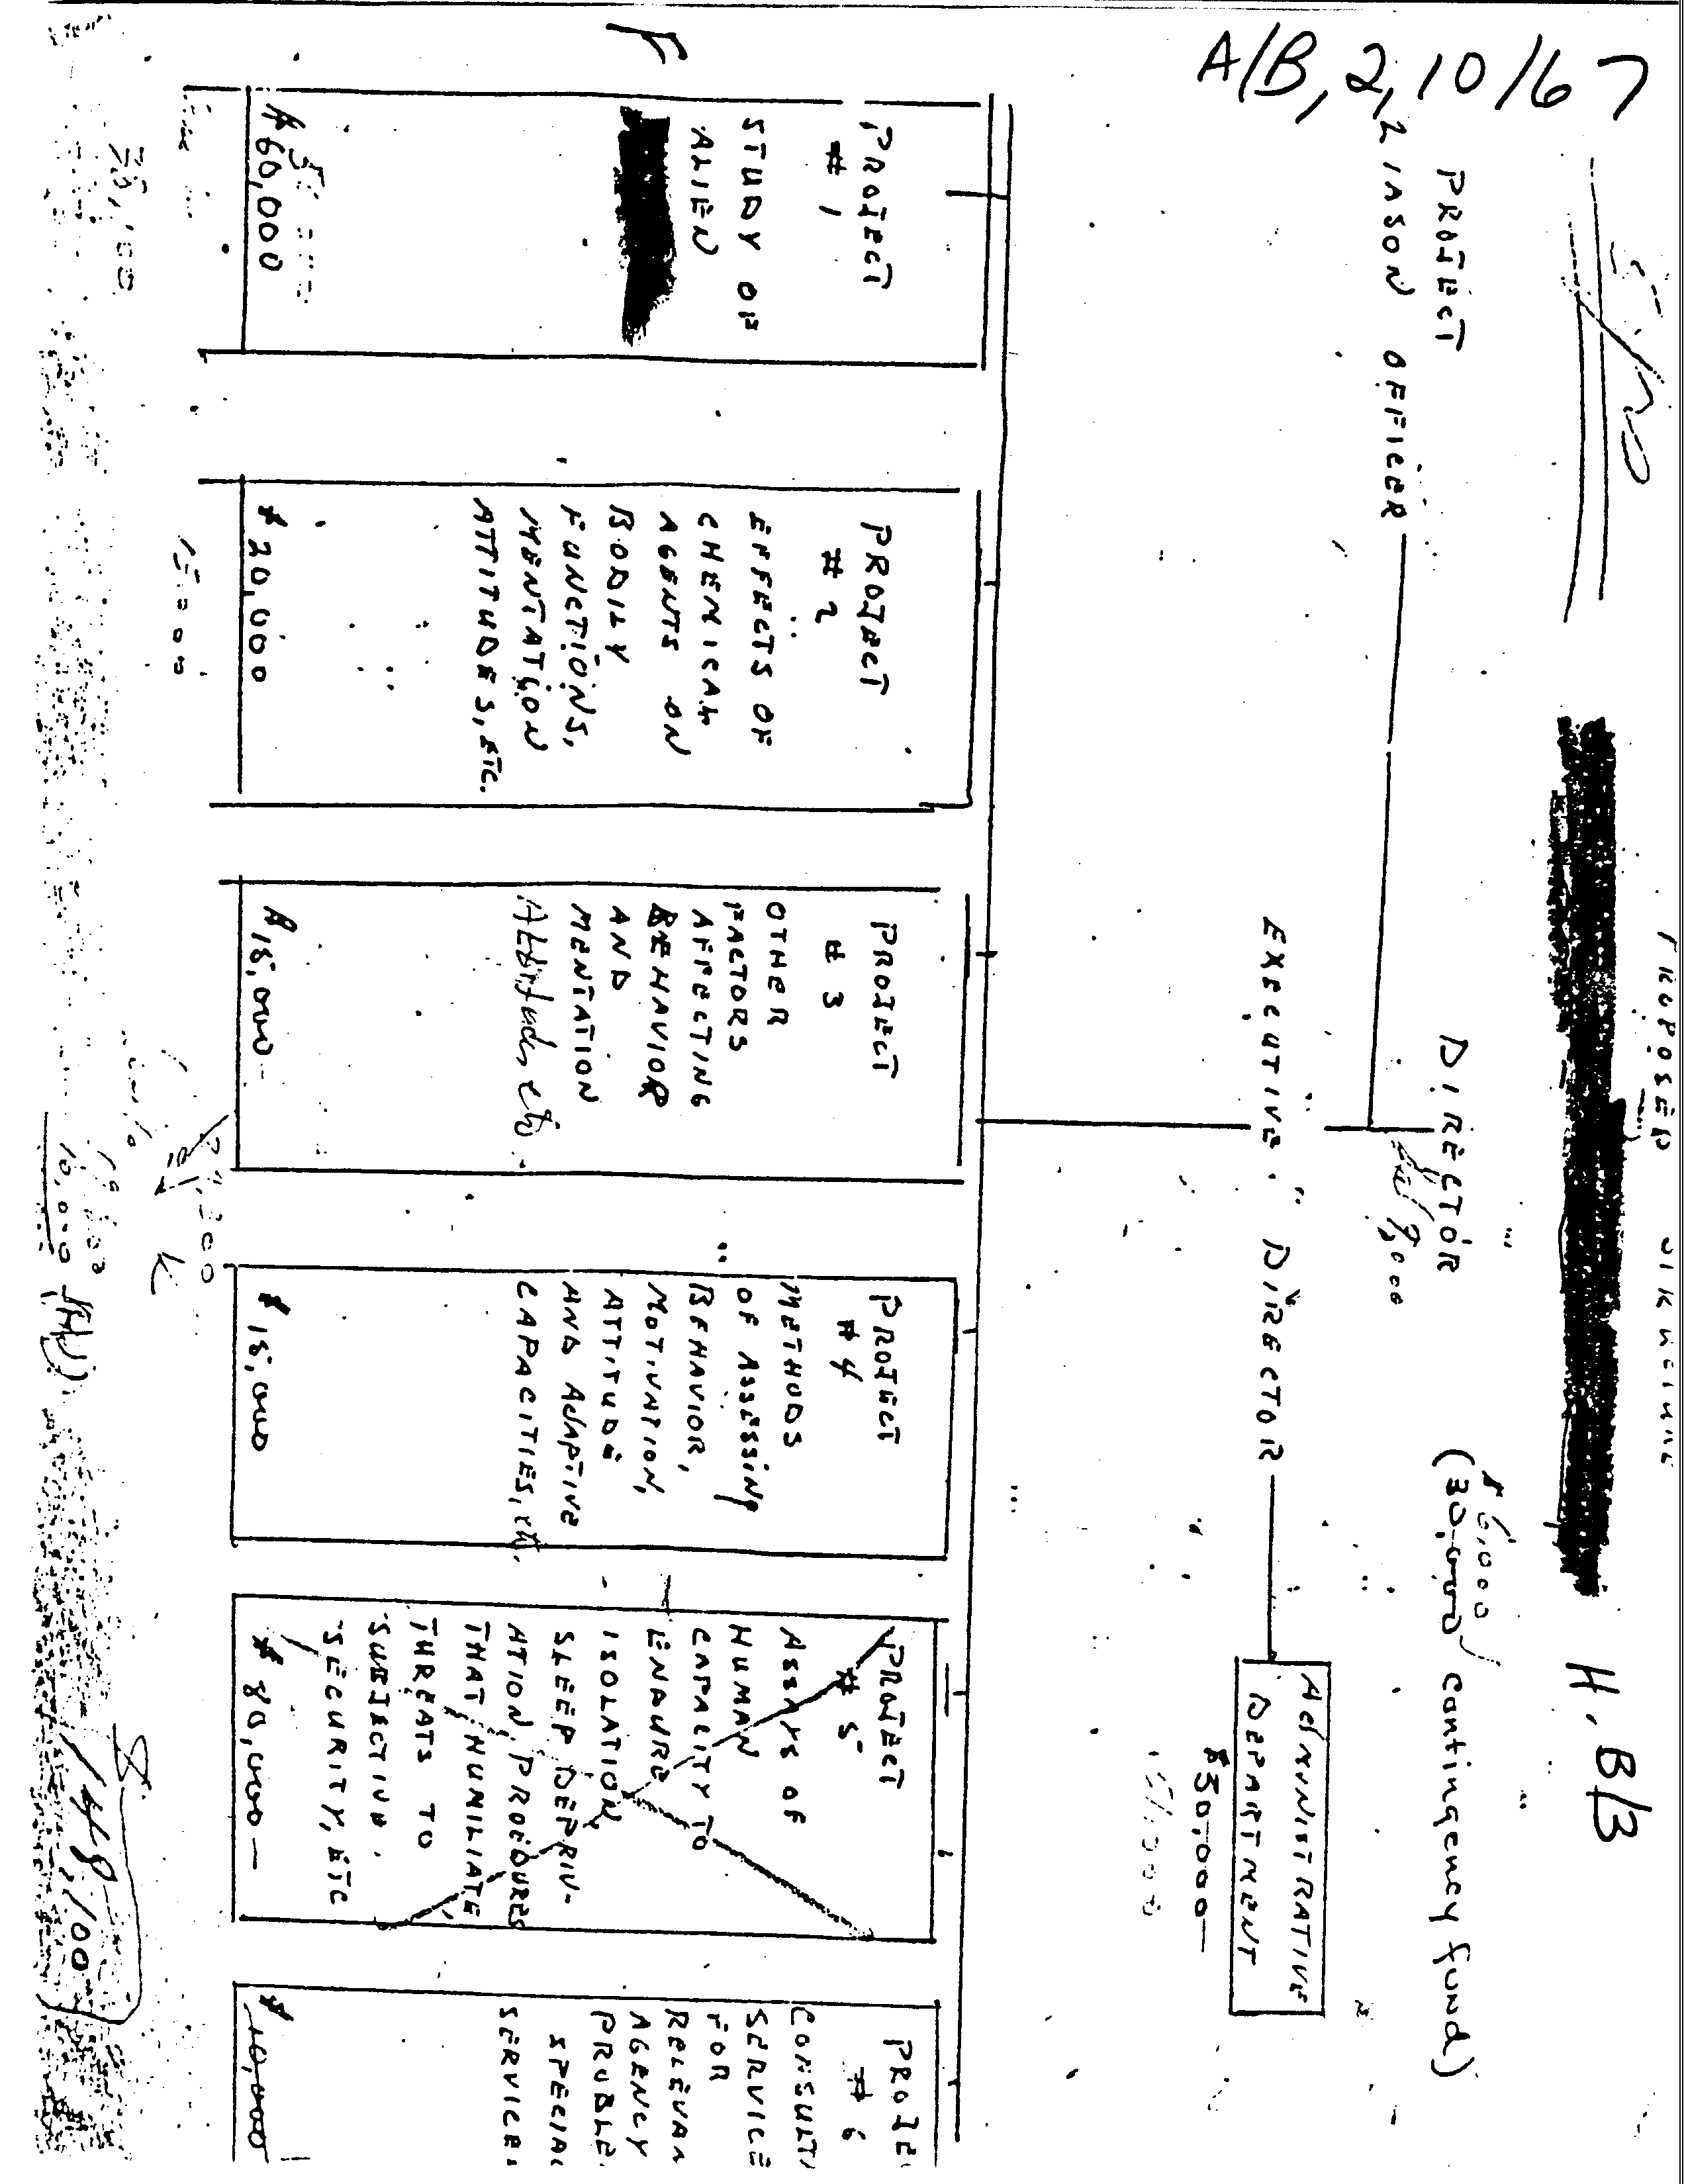 A/B, 2, 10/67
H. B/3
PROPOSED
PROJECT
LIASON OFFICER
DIRECTOR
$6,000
(30,000 contingency fund)
EXECUTIVE DIRECTOR
ADMINISTRATIVE
DEPARTMENT
$30,000—
PROJECT
# 1
STUDY OF
ALIEN
$60,000
PROJECT
# 2
EFFECTS OF
CHEMICAL
AGENTS ON
BODILY
FUNCTIONS,
MENTATION
ATTITUDES, ETC.
$20,000
PROJECT
# 3
OTHER
FACTORS
AFFECTING
BEHAVIOR
AND
MENTATION
Attitudes etc.
$18,000
PROJECT
# 4
METHODS
OF ASSESSING
BEHAVIOR,
MOTIVATION,
ATTITUDE
AND ADAPTIVE
CAPACITIES, etc.
$18,000
PROJECT
# 5
ASSAYS OF
HUMAN
CAPACITY TO
ENDURE
ISOLATION
SLEEP DEPRIV-
ATION, PROCEDURES
THAT HUMILIATE,
THREATS TO
SUBJECTIVE
SECURITY, ETC
$80,000—
PROJEC
# 6
CONSULTI
SERVICE
FOR
RELEVAN
AGENCY
PROBLE
SPECIAL
SERVICE
$10,000
10,000
148,100